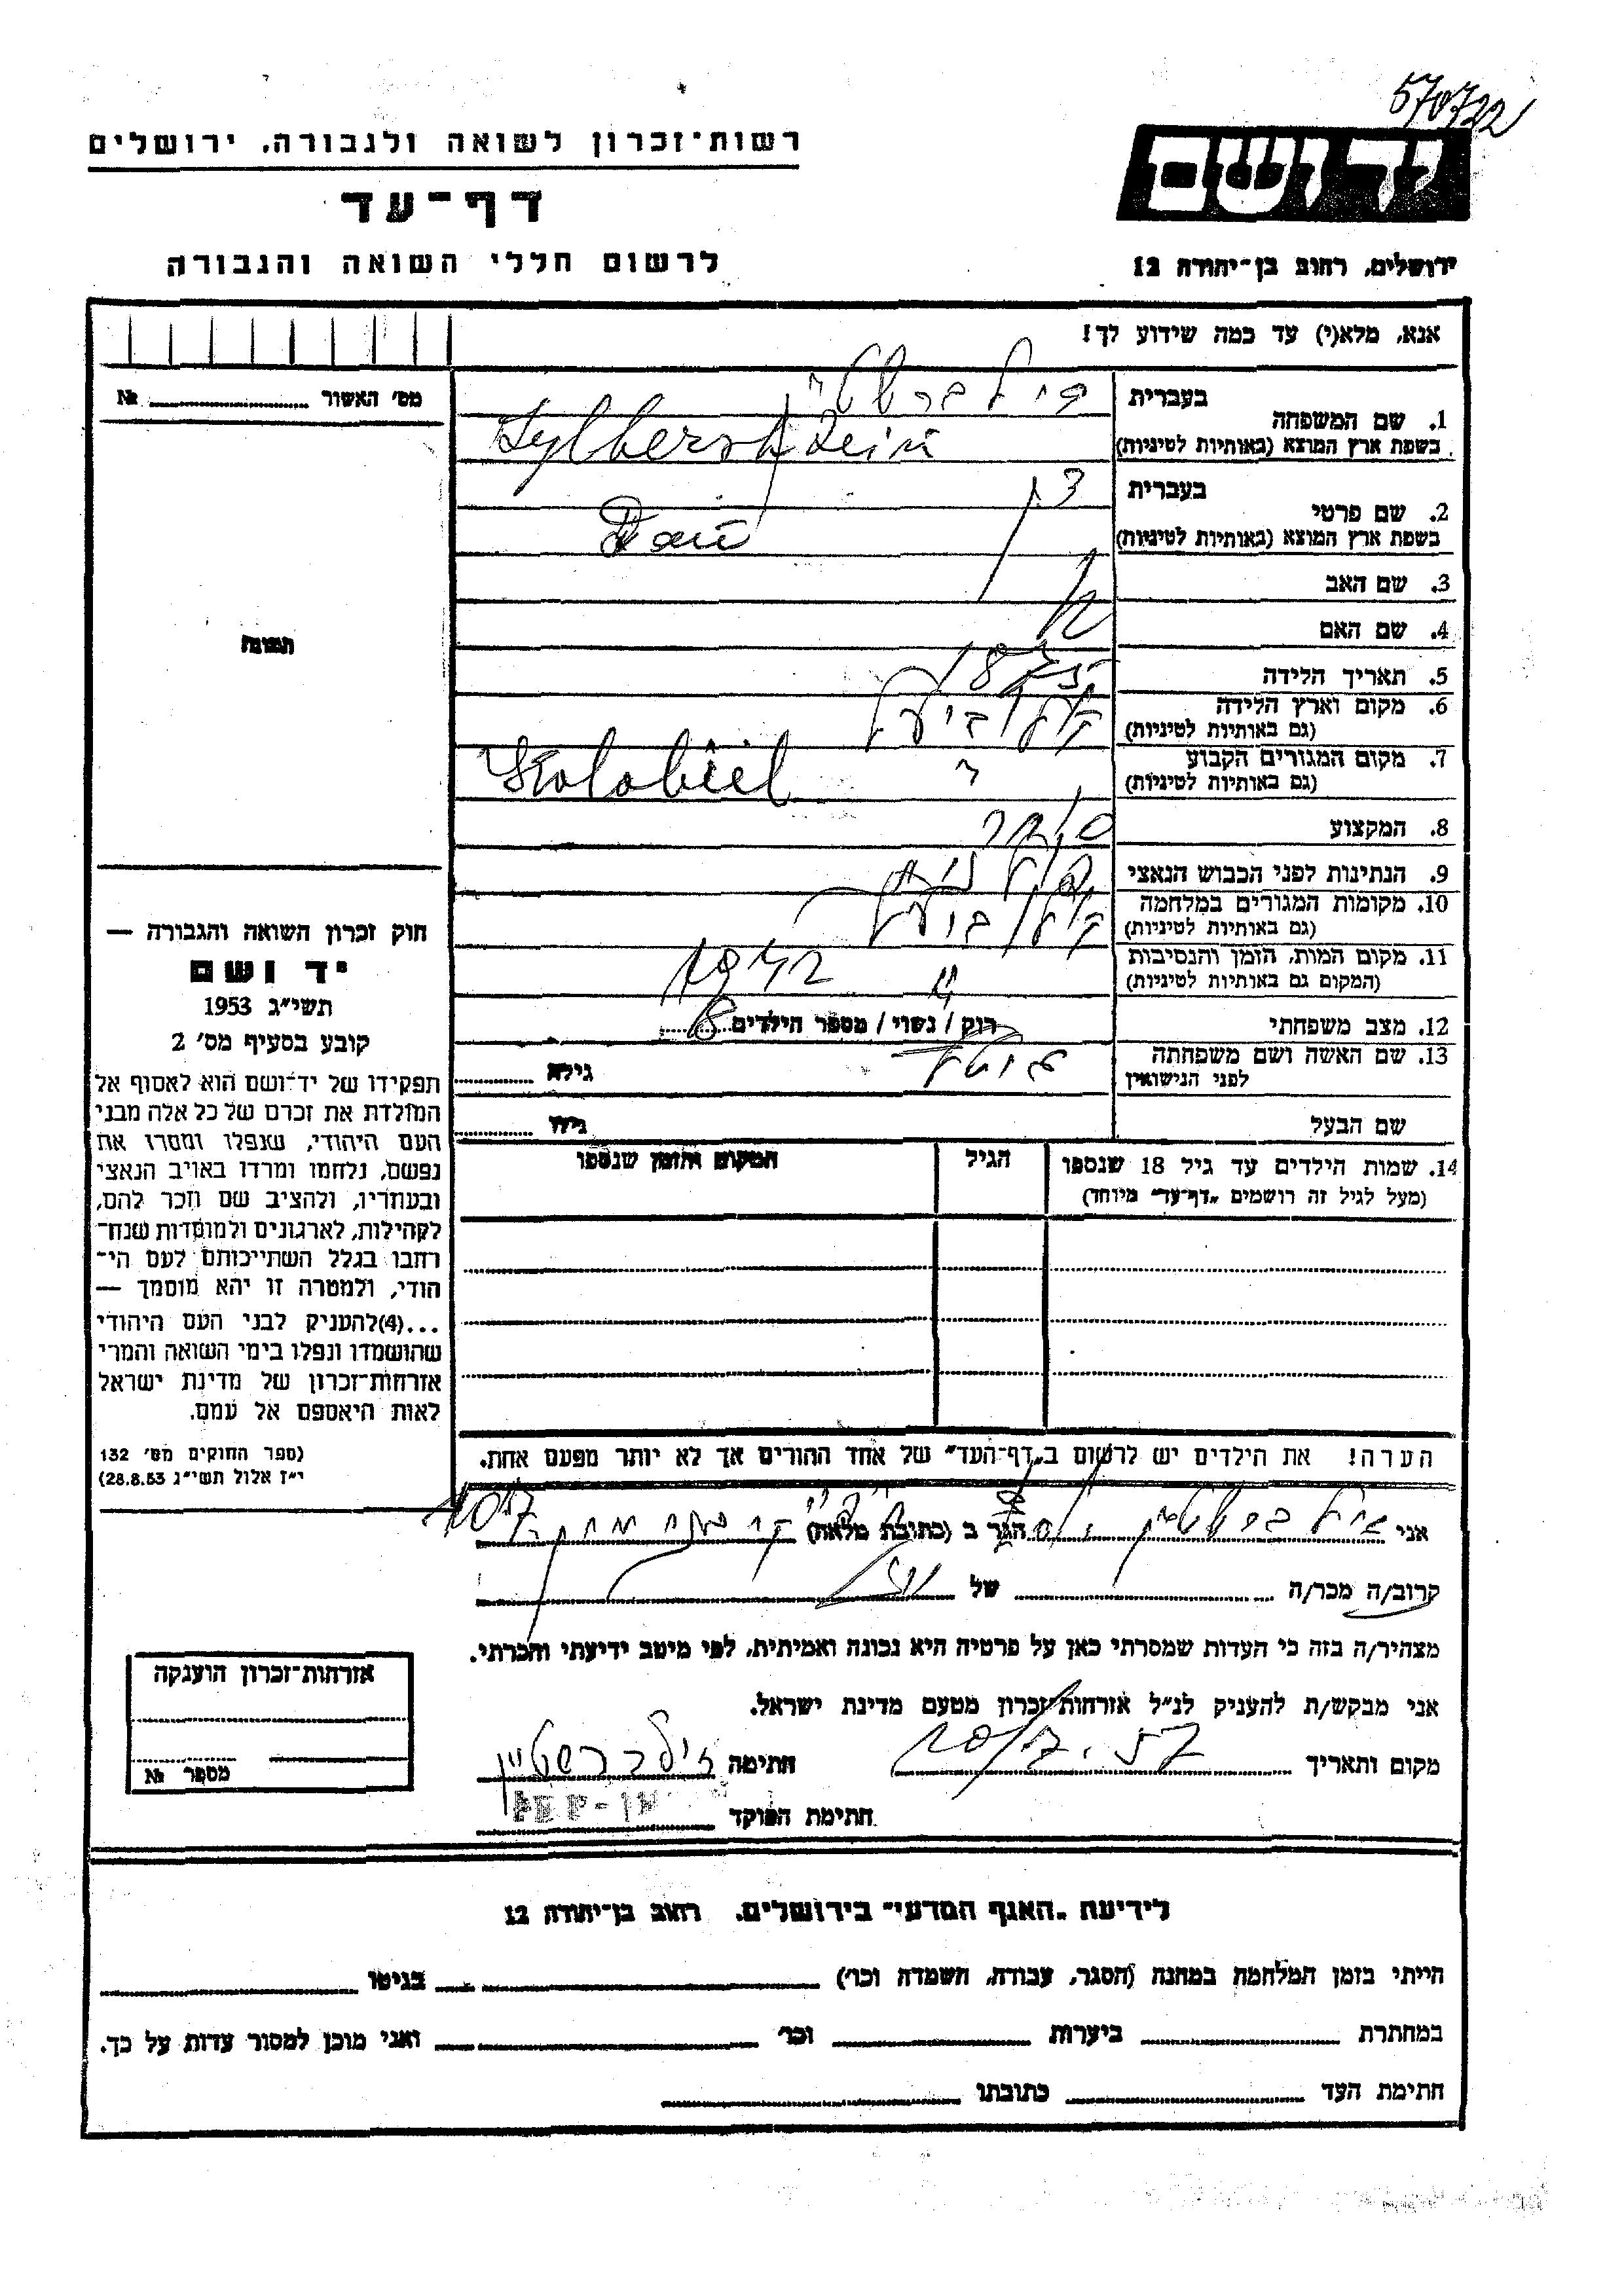 570722
רשות־זכרון לשואה ולגבורה, ירושלים
דף־עד
לרשום חללי השואה והגבורה
יד ושם
ירושלים, רחוב בן־יהודה 12
אנא, מלא(י) עד כמה שידוע לך!
מס׳ האשור № 
תמונה
1. שם המשפחה
בעברית
בשפת ארץ המוצא (באותיות לטיניות)
2. שם פרטי
בעברית דן
בשפת ארץ המוצא (באותיות לטיניות) Dan
3. שם האב
4. שם האם
5. תאריך הלידה
6. מקום וארץ הלידה
(גם באותיות לטיניות)
7. מקום המגורים הקבוע
(גם באותיות לטיניות) Kolobiel
8. המקצוע סוחר
9. הנתינות לפני הכבוש הנאצי
10. מקומות המגורים במלחמה
(גם באותיות לטיניות)
11. מקום המות, הזמן והנסיבות 1942
(המקום גם באותיות לטיניות)
12. מצב משפחתי רוק / נשוי / מספר הילדים 8
13. שם האשה ושם משפחתה
לפני הנישואין
גילה
שם הבעל
גילו
14. שמות הילדים עד גיל 18 שנספו
(מעל לגיל זה רושמים „דף־עד״ מיוחד)
הגיל
המקום והזמן שנספו
הערה! את הילדים יש לרשום ב„דף־העד״ של אחד ההורים אך לא יותר מפעם אחת.
חוק זכרון השואה והגבורה —
יד ושם
תשי״ג 1953
קובע בסעיף מס׳ 2
תפקידו של יד־ושם הוא לאסוף אל
המולדת את זכרם של כל אלה מבני
העם היהודי, שנפלו ומסרו את
נפשם, נלחמו ומרדו באויב הנאצי
ובעוזריו, ולהציב שם וזכר להם,
לקהילות, לארגונים ולמוסדות שנח־
רחבו בגלל השתייכותם לעם הי־
הודי, ולמטרה זו יהא מוסמך —
...(4)להעניק לבני העם היהודי
שהושמדו ונפלו בימי השואה והמרי
אזרחות־זכרון של מדינת ישראל
לאות היאספם אל עמם.
(ספר החוקים מס׳ 132
י״ז אלול תשי״ג 28.8.53)
אני הגר ב (כתובת מלאה)
קרוב/ה מכר/ה של
מצהיר/ה בזה כי העדות שמסרתי כאן על פרטיה היא נכונה ואמיתית, לפי מיטב ידיעתי והכרתי.
אני מבקש/ת להעניק לנ״ל אזרחות־זכרון מטעם מדינת ישראל.
מקום ותאריך חתימה זילברשטיין
חתימת הפוקד
אזרחות־זכרון הוענקה
מספר №
לידיעת „האגף המדעי״ בירושלים. רחוב בן־יהודה 12
הייתי בזמן המלחמה במחנה (הסגר, עבודה, השמדה וכו׳) בגיטו
במחתרת ביערות וכו׳ ואני מוכן למסור עדות על כך.
חתימת העד כתובתו